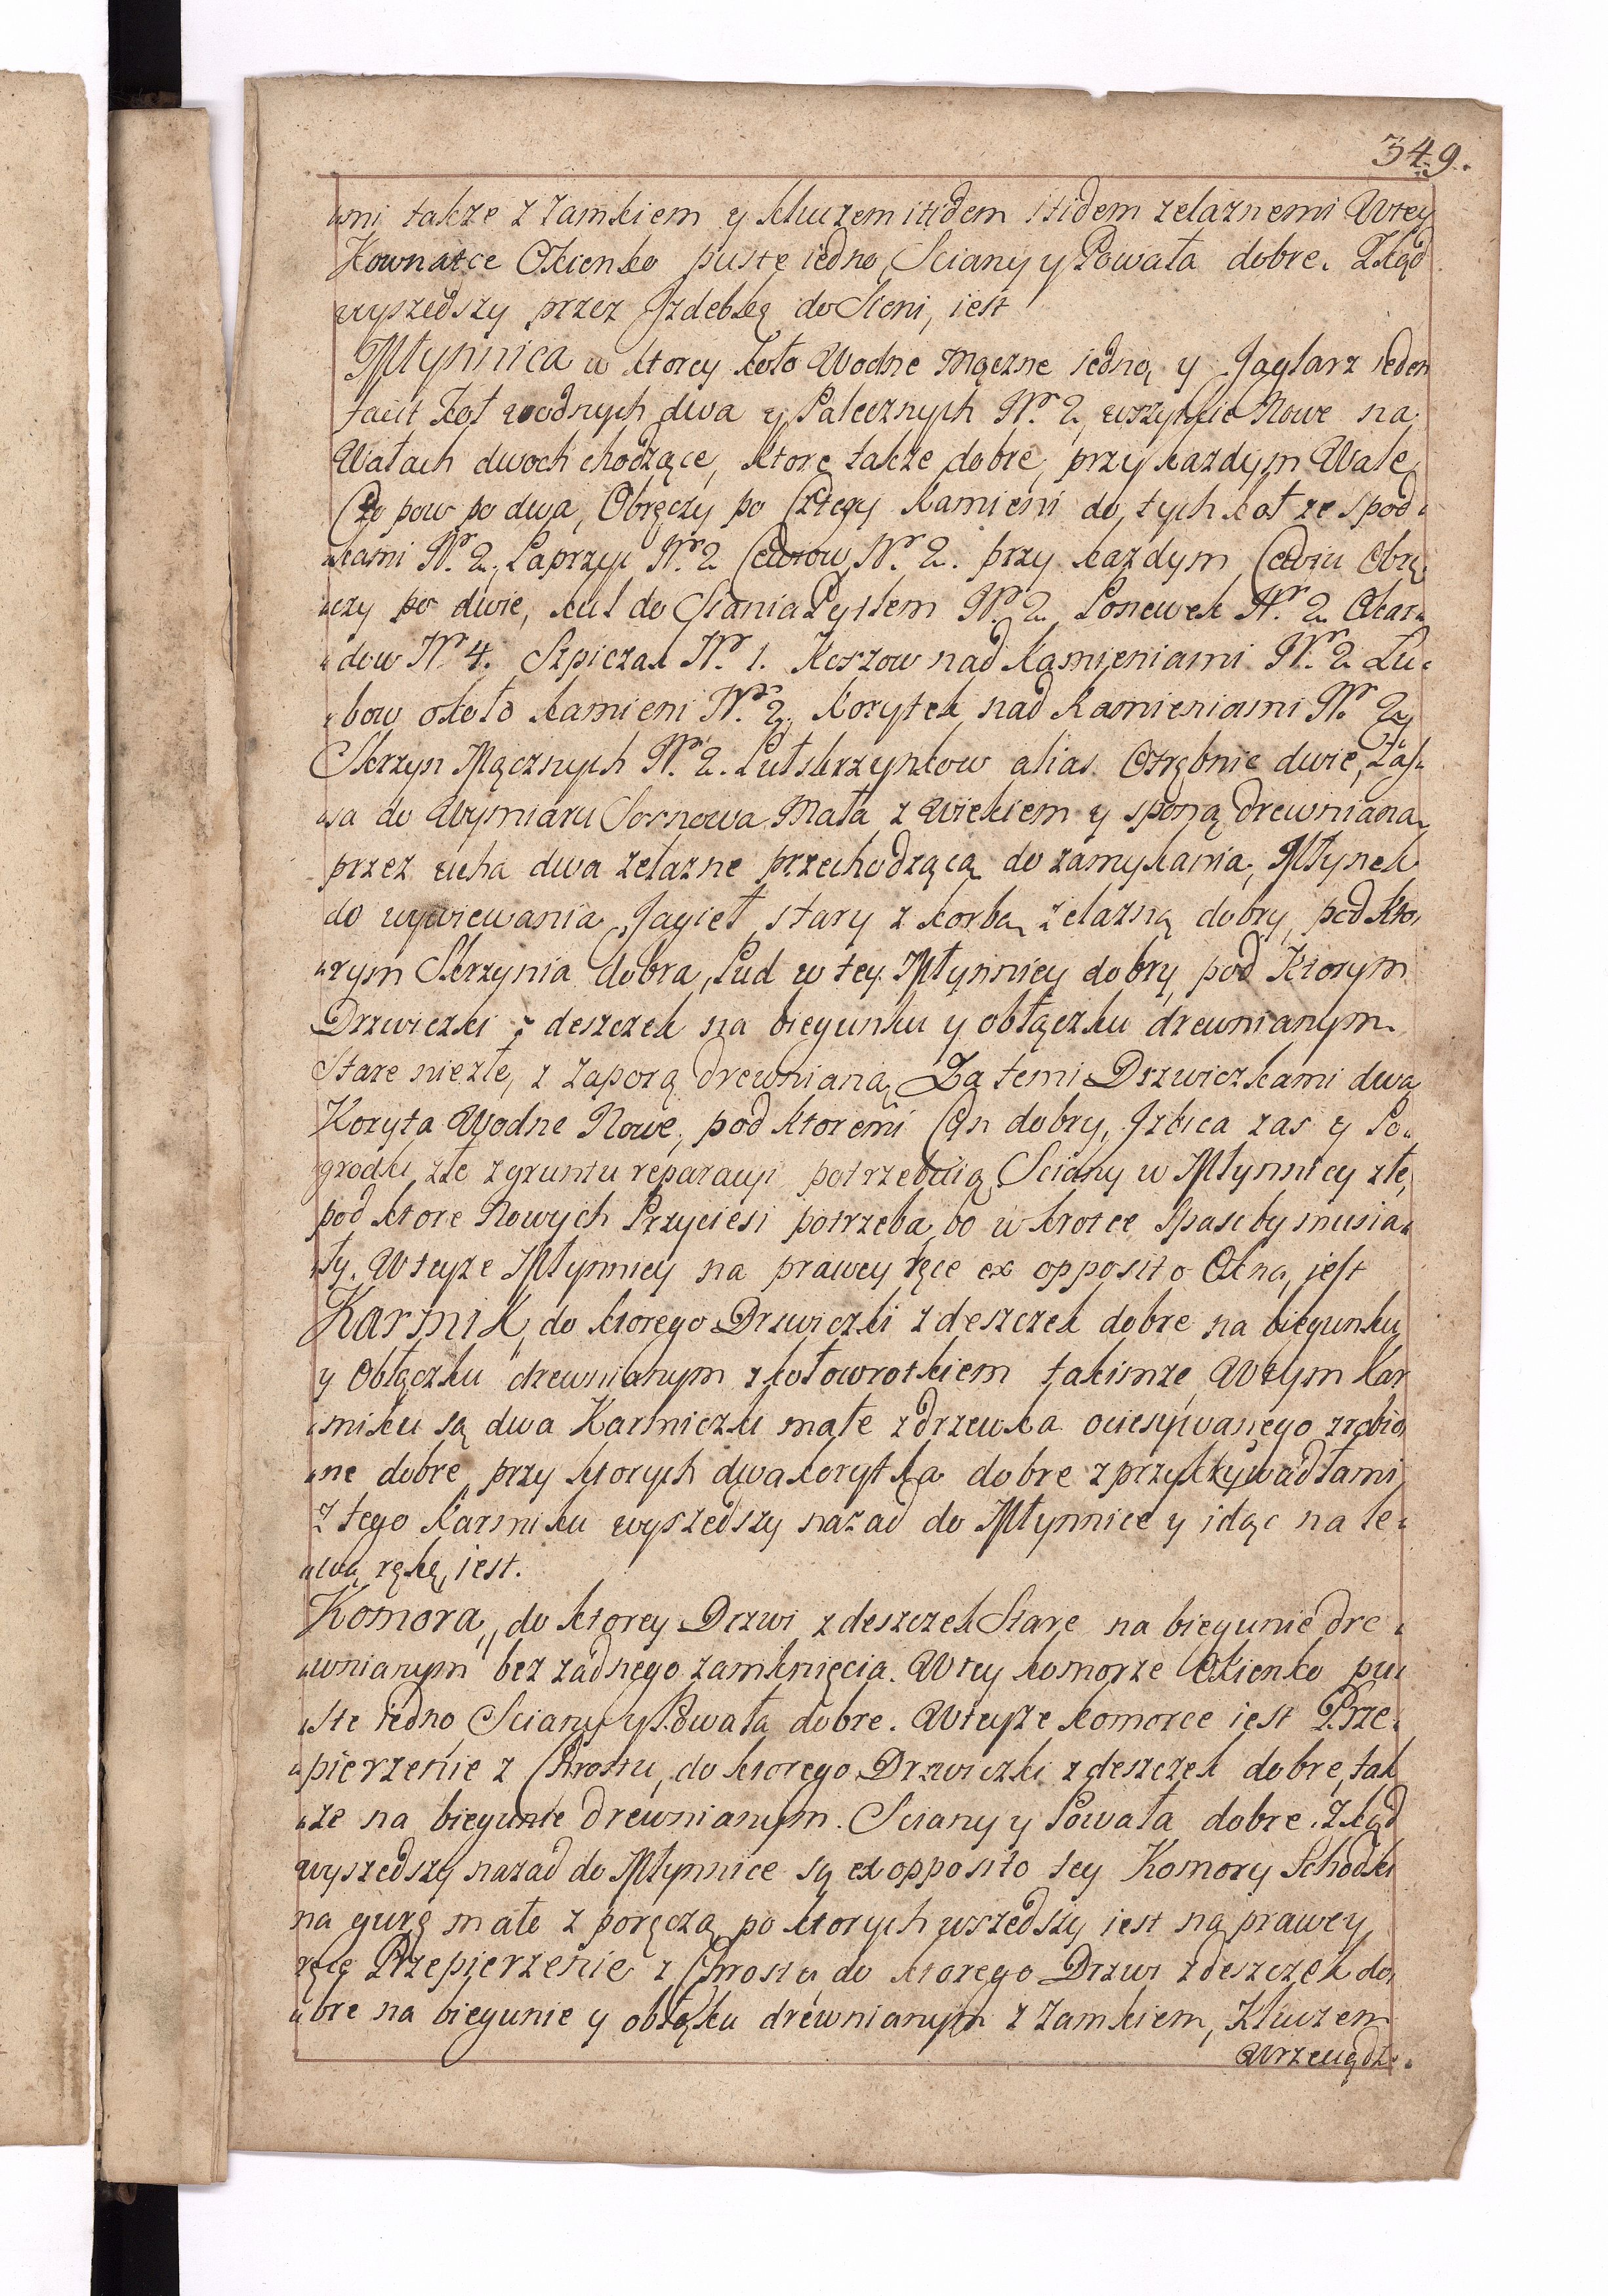 349.
mi takze z Zamkiem y kluczem itidem itidem zelaznemi Wtey
Kownatce Okienko puste iedno, Sciany y Powała dobre. Zkąd
wyszedszy przez Izdebkę do Sieni, iest
Młynnica w ktorey Koło Wodne Mączne iedno y Jaglarz ieden
facit Koł wodnych dwa y Palecznych Nr. 2, wszystkie Nowe na
Wałach dwoch chodzące, ktore takze dobre, przy kazdym Wale
Czopow po dwa, Obręczy po Cztery kamieni do tych koł ze spod
kami Nr. 2. Paprzyc Nr. 2 Cewiow Nr. 2. przy kazdym Cewiu Obrę
czy po dwie, kul do Stania Pytlem Nr. 2. Ponewek Nr. 2.
dow Nr. 4. Szpiczak Nr. 1. Koszow nad kamieniami Nr. 2 Lu
bow około kamieni Nr. 2. korytek nad kamieniami Nr. 2.
Skrzyn Mącznych Nr. 2. Pułskrzynkow alias Otrębnie dwie,
sa do Wymiaru Sosnowa Mała z Wiekiem y sponą drewnianą
przez ucha dwa zelazne przechodzącą do zamykania, Młynek
do wywiewania Jagieł stary z korbą zelazną dobry, pod kto
rym Skrzynia dobra, Lud w tey Młynnicy dobry pod Ktorym
Drzwiczki z deszczek na biegunku y obłączku drewnianym
Stare niezłe, z zaporą drewnianą. Za temi Drzwiczkami dwa
Koryta Wodne Nowe, pod ktoremi Gan dobry, Izbica zas y Po
grodki złe z gruntu reparacyi potrzebuią Sciany w Młynnicy złe,
pod ktore Nowych Przyciesi potrzeba, bo w krotce spasc by musia
ły. Wteyze Młynnicy na prawey ręce ex opposito Okna, jest
Karmik, do ktorego Drzwiczki z deszczek dobre na biegunku
y Obłączku drewnianym z kołowrotkiem takimze Wtym Kar
miku są dwa Karmiczki małe z drzewka ociesywanego zrobio
ne dobre, przy ktorych dwa korytka dobre z przykrywadłami
Z tego Karmiku wyszedszy nazad do Młynnice y idąc na le
wą rękę, iest.
Komora, do ktorey Drzwi z deszczek Stare na biegunie dre
wnianym bez zadnego zamknięcia. Wtey komorze Okienko pu
ste iedno, Sciany y Powała dobre. Wteyze komorce iest Prze
pierzenie z Chrostu, do ktorego Drzwiczki z deszczek dobre, tak
ze na biegunie drewnianym. Sciany y Powała dobre. Zkąd
wyszedszy nazad do Młynnice są ex opposito tey Komory Schodki
na gurę małe z poręczą, po ktorych wszedszy iest na prawey
ręce Przepierzenie z Chrostu do ktorego Drzwi z deszczek do
bre na biegunie y obłąku drewnianym z Zamkiem, Kluczem
Wrzeciądz